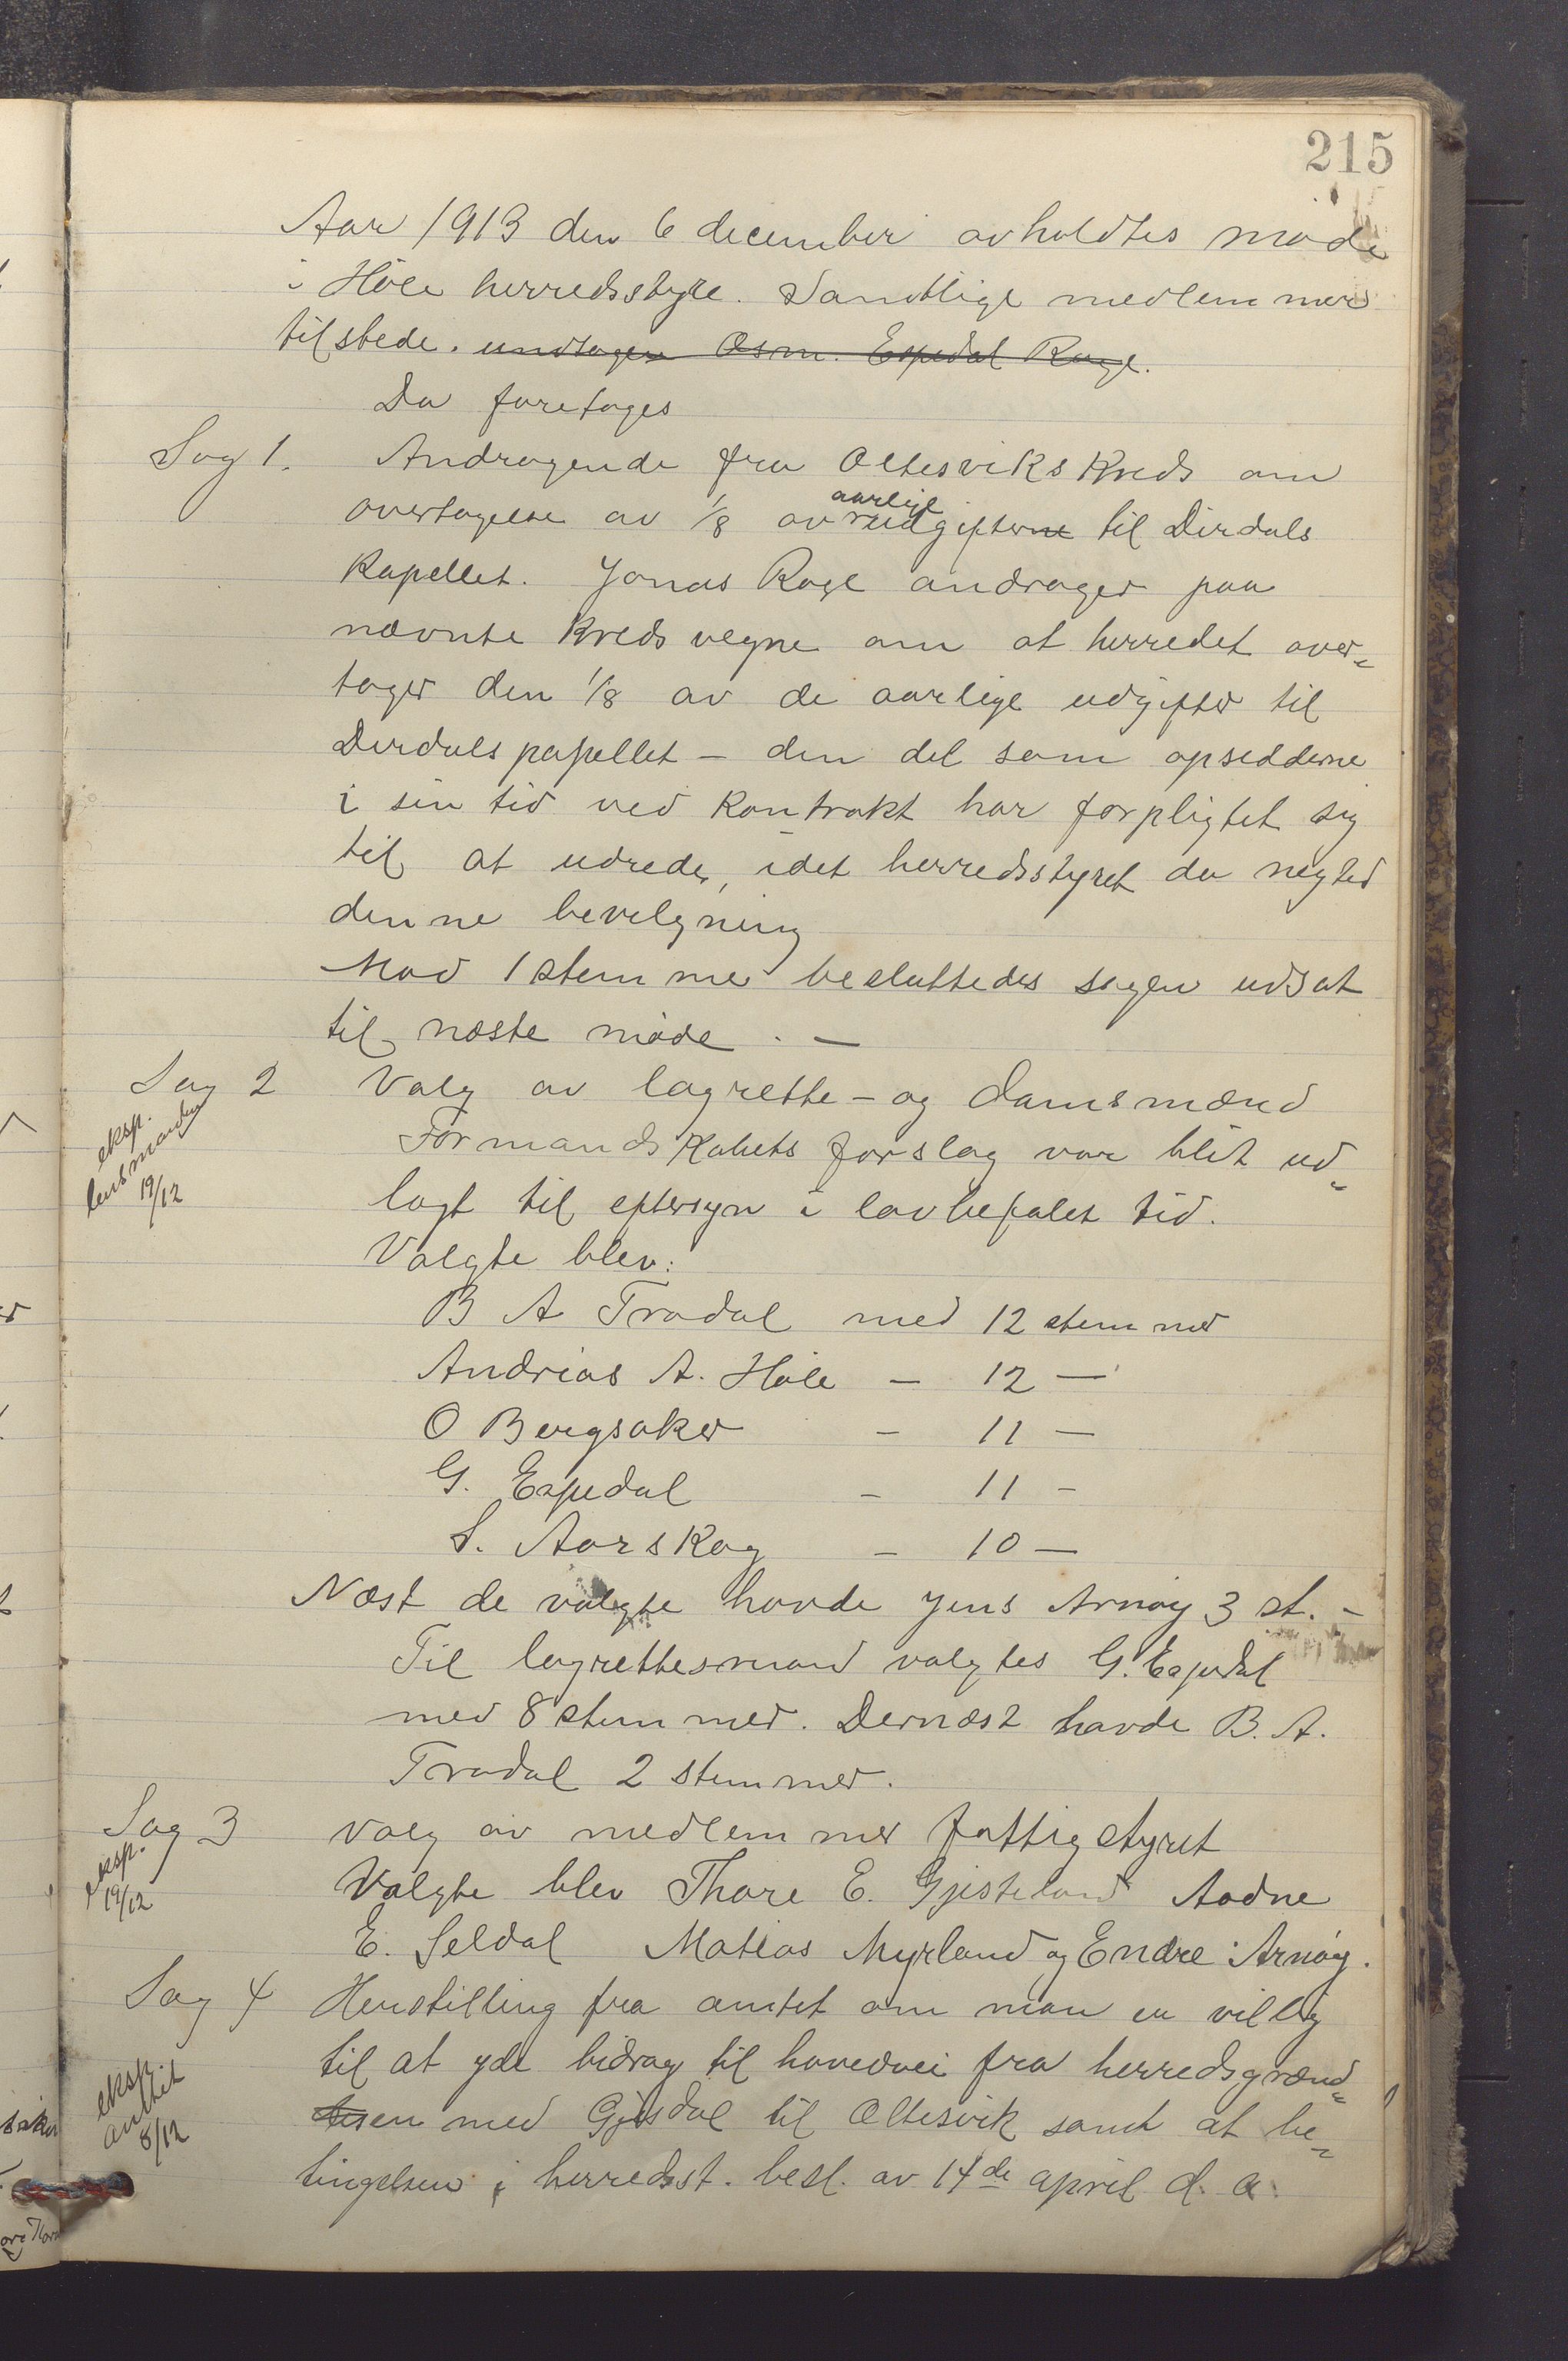 215
Aar 1913 den 6 december avholdtes møde
i Høle herredsstyre. Samtlige medlemmer
tilstede. undtagen Osm. Espedal Rage.
Da foretoges
Sag 1. Andragende fra Oltesviks Kreds om
overtagelse av 1/8 av aarlige udgifterne til Dirdals
Kapellet. Jonas Rage andrager paa
nævnte Kreds vegne om at herredet over-
tager den 1/8 av de aarlige udgifter til
Dirdalspapellet - den del som opsidderne
i sin tid ved Kontrakt har forpligtet sig
til at udrede, idet herredsstyret da negted
denne bevilgning
Mod 1 stemme besluttedes sagen udsat
til næste møde. —
Sag 2 Valg av lagrette- og domsmænd
eksp.
lensmanden
19/12
Formandskabets forslag var blit ud-
lagt til eftersyn i lovbefalet tid.
Valgte blev:
B A Tradal med 12 stemmer
Andreas A. Høle - 12 -
O Bergsaker - 11 -
G. Espedal - 11 -
S. Aarskog - 10 -
Næst de valgte havde Jens Arnøy 3 st. -
Til lagrettesmand valgtes G. Espedal
med 8 stemmer. Dernæst havde B. A.
Tradal 2 stemmer.
Sag 3 valg av medlemmer fattigstyret
eksp.
19/12
Valgte blev Thore E. Gjesteland Aadne
E. Seldal Matias Myrland og Endre Arnøy.
Sag 4 Henstilling fra amtet om man er villig
til at yde bidrag til hovedvei fra herredsgrænd-
eksp
amtet
8/12
sen med Gjesdal til Oltesvik samt at be-
tingelsen i herredsst. besl. av 14de april d. a.